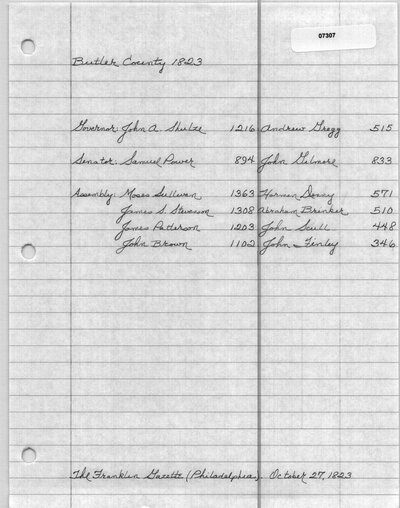 07307
Butler County 1823
Governor: John A. Shultze 1216 Andrew Gregg 515
Senator: Samuel Power 894 John Gilmore 833
Assembly: Moses Sullivan 1363 Harman Denny 571
James S. Stevenson 1308 Abraham Brinker 510
James Patterson 1203 John Scull 448
John Brown 1102 John Finley 346
The Franklin Gazette (Philadelphia). October 27, 1823